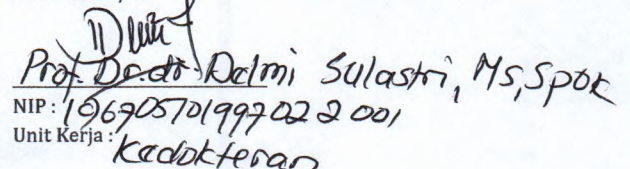 Prof. Dr. dr. Delmi Sulastri, Ms, SpGK
NIP : 196705101997022001
Unit Kerja : Kedokteran